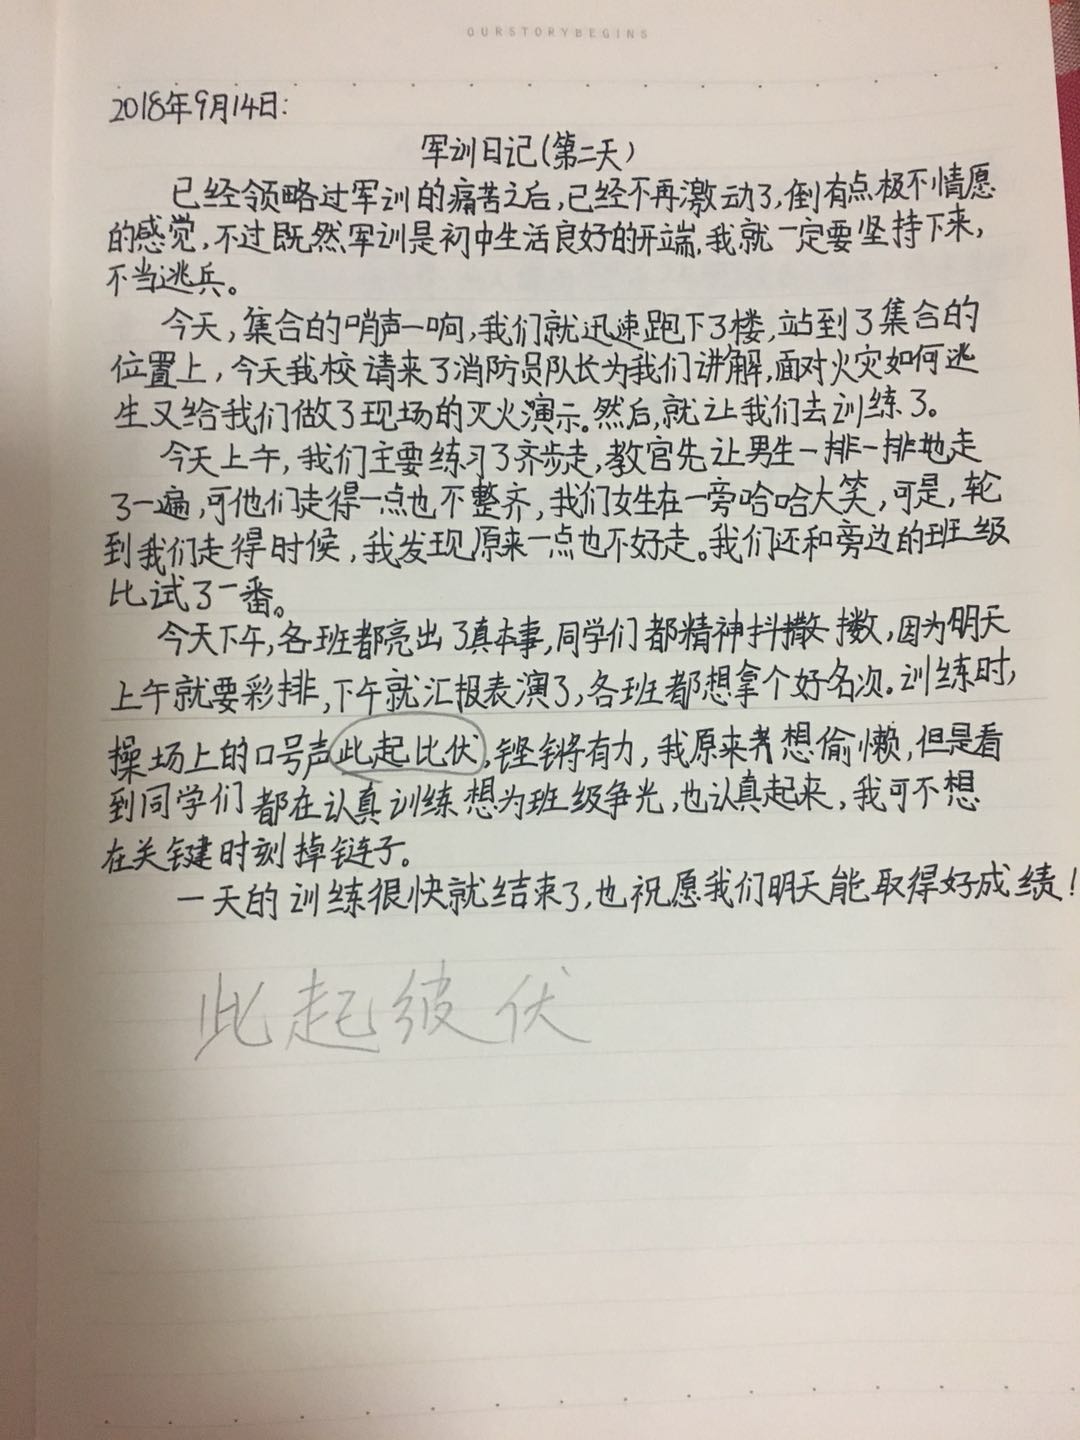 OURSTORYBEGINS
2018年9月14日:
军训日记(第二天)
已经领略过军训的痛苦之后,已经不再激动了,倒有点极不情愿
的感觉,不过既然军训是初中生活良好的开端,我就一定要坚持下来,
不当逃兵。
今天,集合的哨声一响,我们就迅速跑下了楼,站到了集合的
位置上,今天我校请来了消防员队长为我们讲解,面对火灾如何逃
生又给我们做了现场的灭火演示。然后,就让我们去训练了。
今天上午,我们主要练习了齐步走,教官先让男生一排一排地走
了一遍,可他们走得一点也不整齐,我们女生在一旁哈哈大笑,可是,轮
到我们走得时候,我发现原来一点也不好走。我们还和旁边的班级
比试了一番。
今天下午,各班都亮出了真本事,同学们都精神抖擞,因为明天
上午就要彩排,下午就汇报表演了,各班都想拿个好名次。训练时,
操场上的口号声此起比伏,铿锵有力,我原来想偷懒,但是看
到同学们都在认真训练想为班级争光,也认真起来,我可不想
在关键时刻掉链子。
一天的训练很快就结束了,也祝愿我们明天能取得好成绩!
此起彼伏